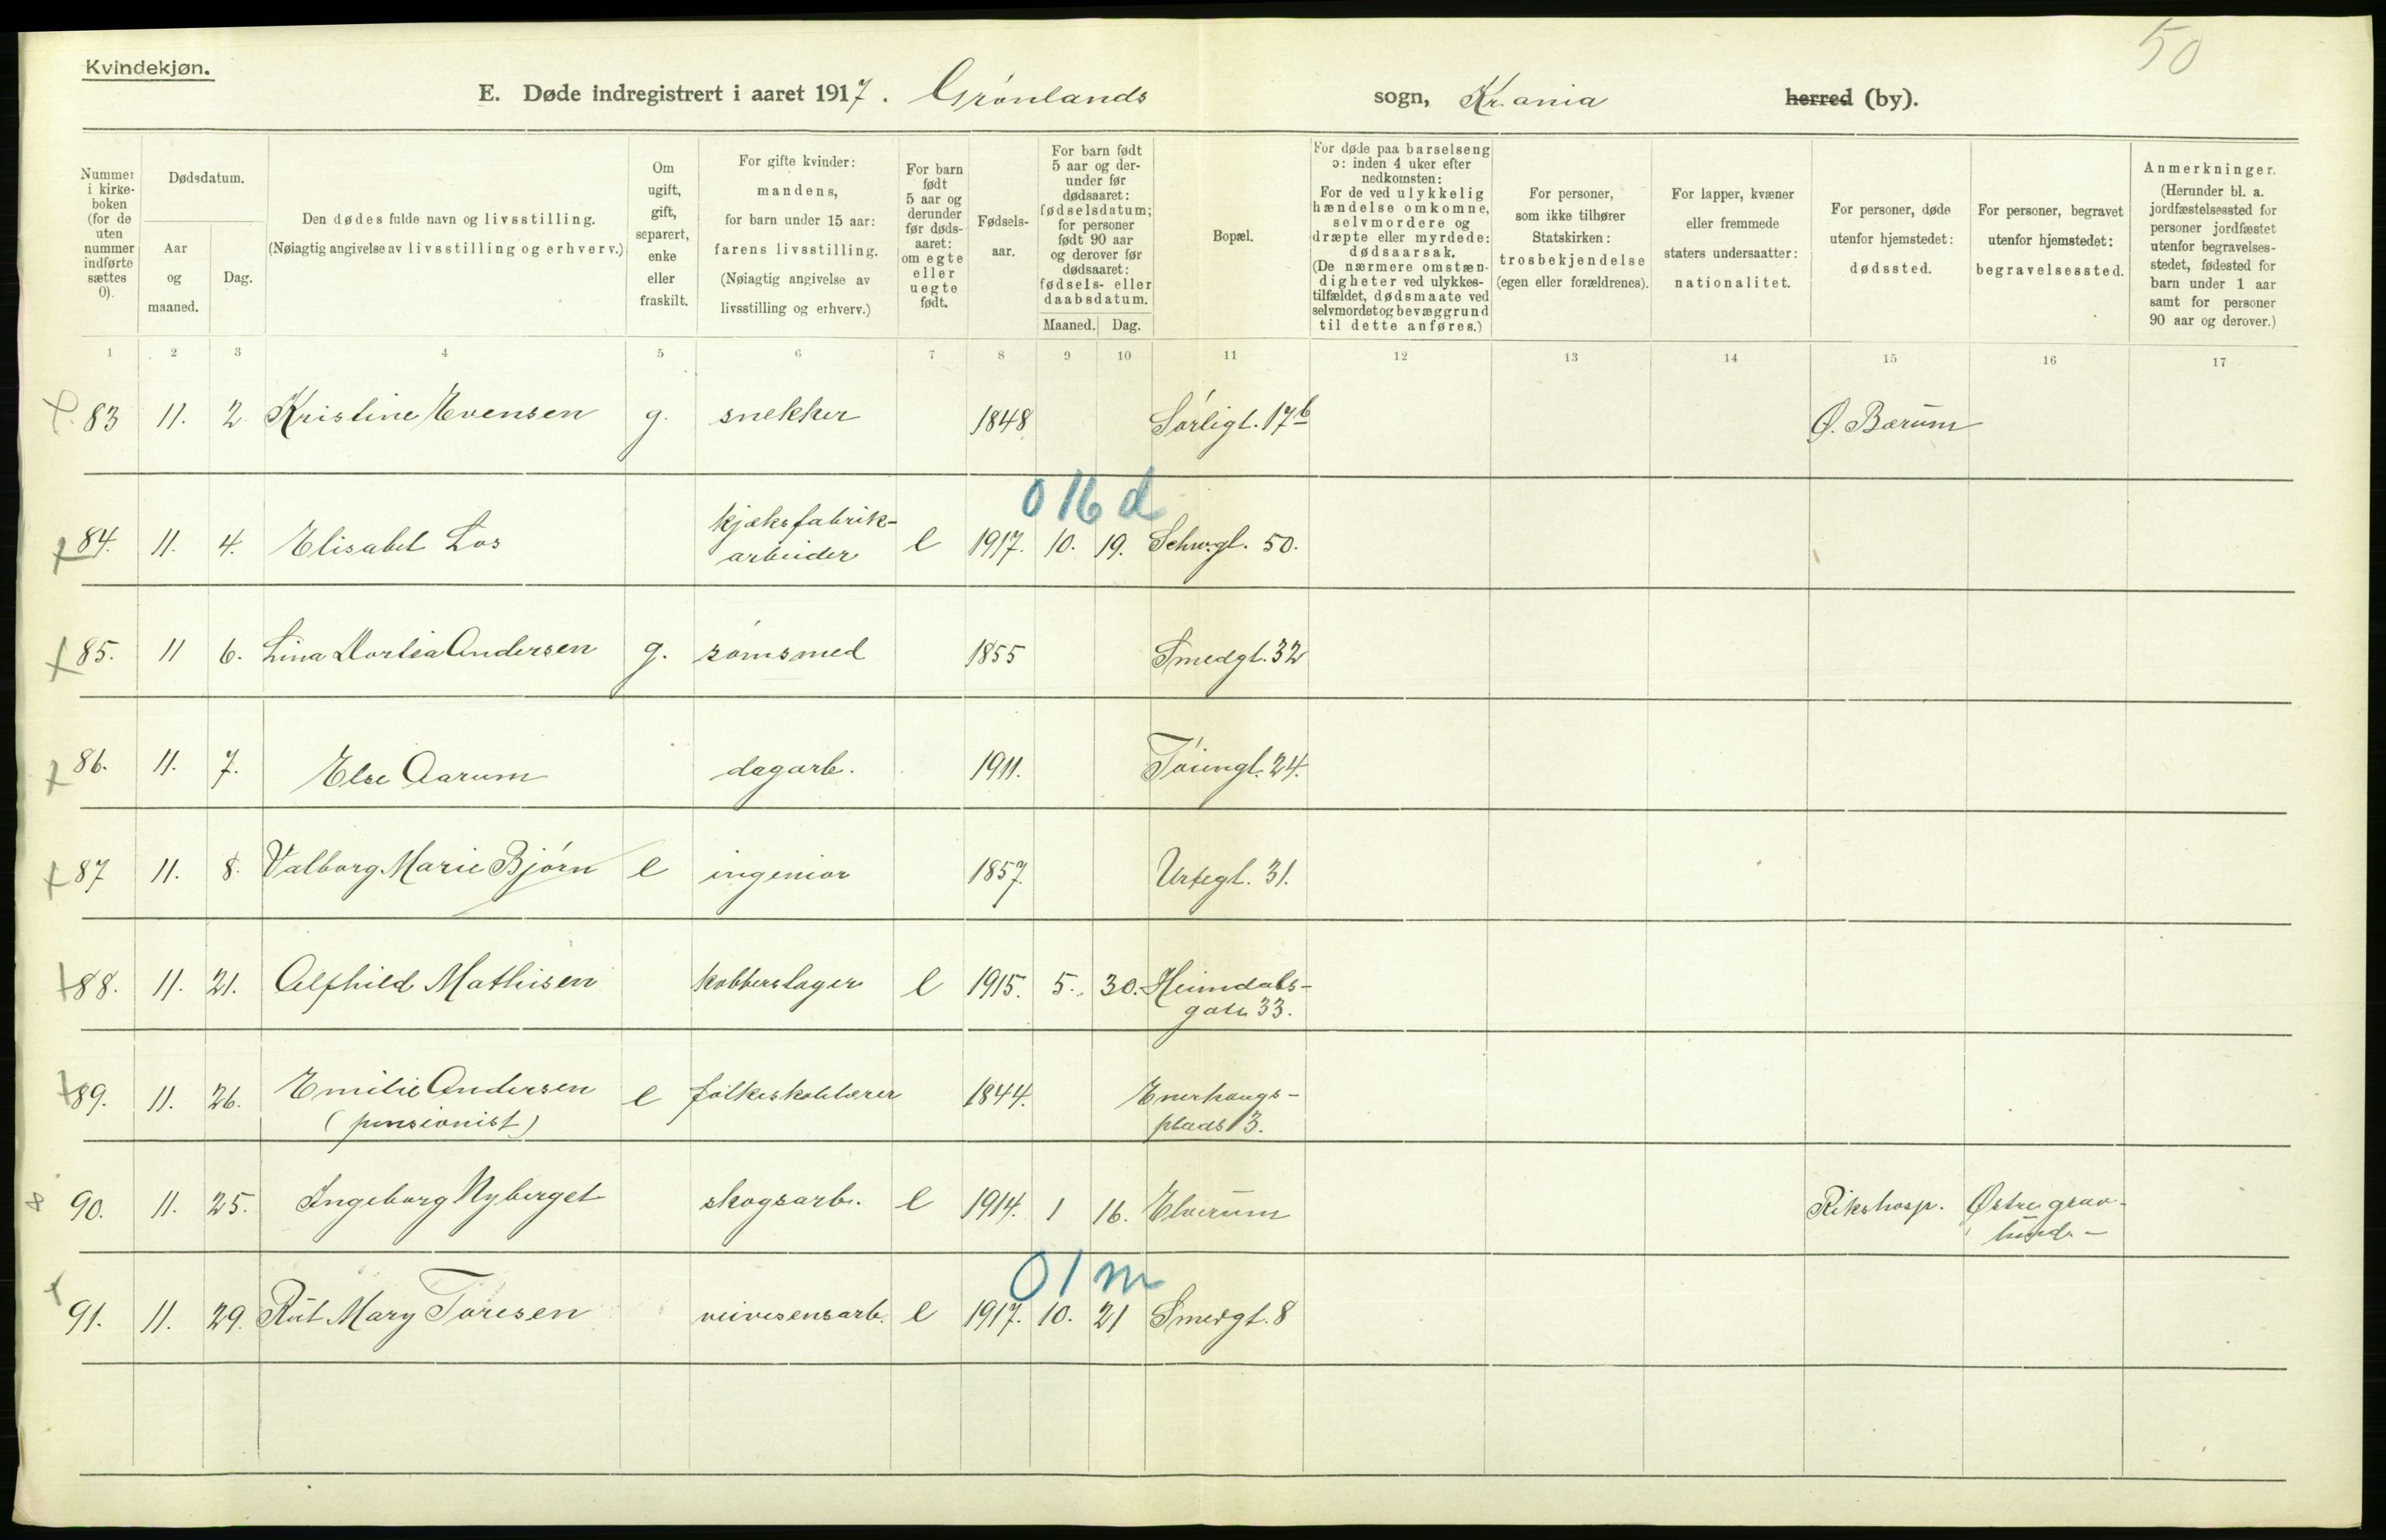 50
Kvindekjøn.
E. Døde indregistrert i aaret 1917. Grønlands sogn, Kr.ania herred (by).
Nummer i kirkeboken (for de uten nummer indførte sættes 0).
Dødsdatum.
Aar og maaned.
Dag.
Den dødes fulde navn og livsstilling.
(Nøiagtig angivelse av livsstilling og erhverv.)
Om ugift, gift, separert, enke eller fraskilt.
For gifte kvinder: mandens, for barn under 15 aar: farens livsstilling. (Nøiagtig angivelse av livsstilling og erhverv.)
For barn født 5 aar og derunder før dødsaaret: om egte eller uegte født.
Fødselsaar.
For barn født 5 aar og derunder før dødsaaret: fødselsdatum; for personer født 90 aar og derover før dødsaaret: fødsels- eller daabsdatum.
Maaned. Dag.
Bopæl.
For døde paa barselseng ɔ: inden 4 uker efter nedkomsten: For de ved ulykkelig hændelse omkomne, selvmordere og dræpte eller myrdede: dødsaarsak. (De nærmere omstændigheter ved ulykkestilfældet, dødsmaate ved selvmordet og bevæggrund til dette anføres.)
For personer, som ikke tilhører Statskirken: trosbekjendelse (egen eller forældrenes).
For lapper, kvæner eller fremmede staters undersaatter: nationalitet.
For personer, døde utenfor hjemstedet: dødssted.
For personer, begravet utenfor hjemstedet: begravelsessted.
Anmerkninger. (Herunder bl. a. jordfæstelsessted for personer jordfæstet utenfor begravelsesstedet, fødested for barn under 1 aar samt for personer 90 aar og derover.)
1 2 3 4 5 6 7 8 9 10 11 12 13 14 15 16 17
83 11. 2 Kristine Evensen g. snekker 1848 Sørligt. 17b Ø. Bærum
016 d
84. 11. 4. Elisabet Los kjæksfabrik-arbeider e 1917. 10. 19. Schw.gt. 50.
85. 11 6. Lina Dortea Andersen g. sømsmed 1855 Smedgt. 32
86. 11. 7. Else Aarum dagarb. 1911. Tøiengt. 24.
87 11. 8. Valborg Marie Bjørn e ingeniør 1857. Urtegt. 31.
88. 11. 21. Alfhild Mathisen kobberslager e 1915. 5. 30. Heimdals-
gate 33.
89. 11. 26. Emilie Andersen e folkeskolelærer 1844. Enerhaugs-
(pensionist) plads 3.
90. 11. 25. Ingeborg Nyberget skogsarb. e 1914. 1 16. Elverum Rikshosp. Østre grav-
lund. -
01 m
91. 11. 29. Rut Mary Toresen veivesensarb. e 1917. 10. 21 Smedgt. 8